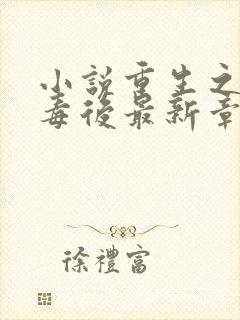 小說重生之
毒後最新章
徐禮富